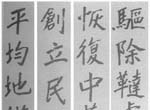 驅除韃
恢復中
創立民
平均地